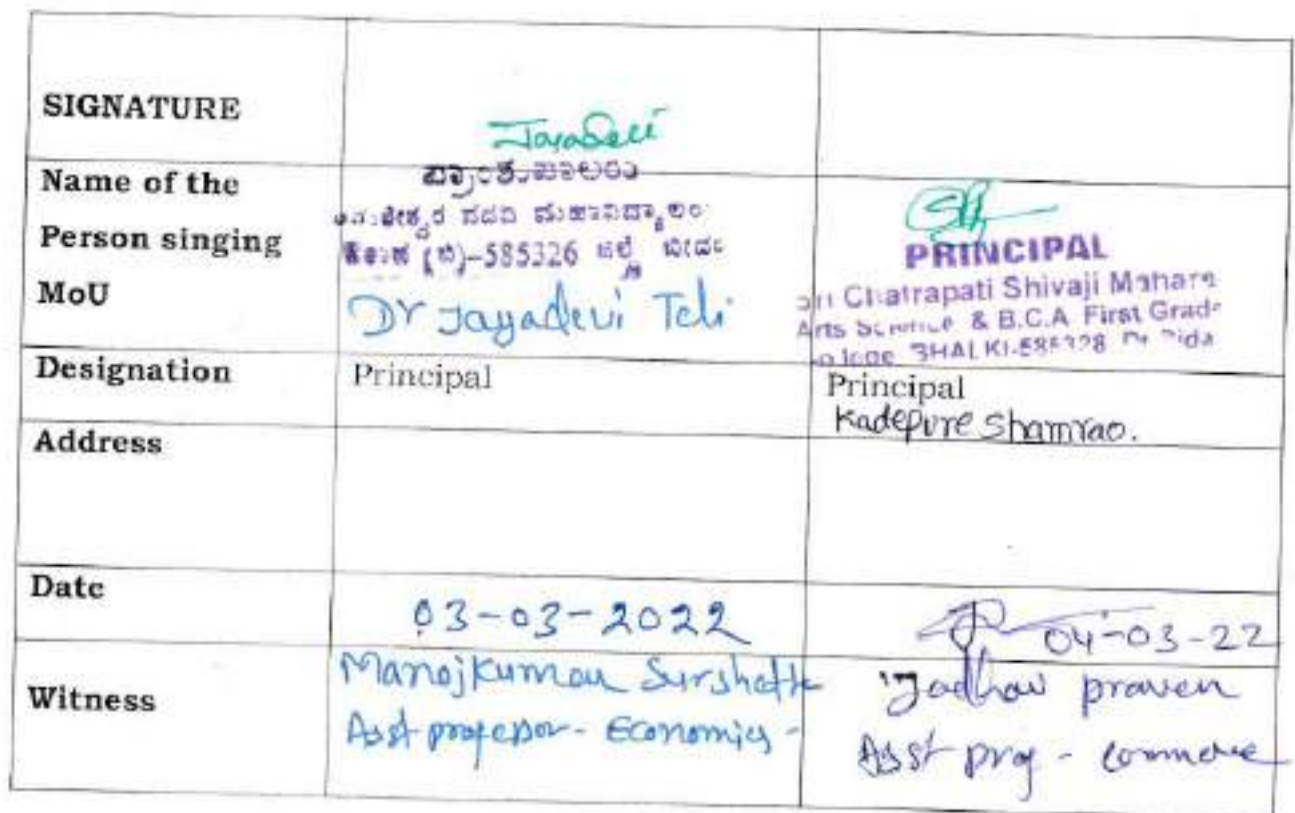 SIGNATURE
Jayadevi
Name of the
Person singing
MoU
ಪ್ರಾಂಶುಪಾಲರು
ಮಹಾವಿದ್ಯಾಲಯ
(ಬಿ)-585326 ಜಿಲ್ಲೆ ಬೀದರ
Dr Jayadevi Teli
PRINCIPAL
Chatrapati Shivaji Mahara
Arts Science & B.C.A First Grad
BHALKI-585328
Designation
Principal
Principal
Kadepure Shamrao.
Address
Date
03-03-2022
04-03-22
Witness
Manojkumar Surshette
Asst professor - Economics -
Jadhav praven
Asst prof - commerce